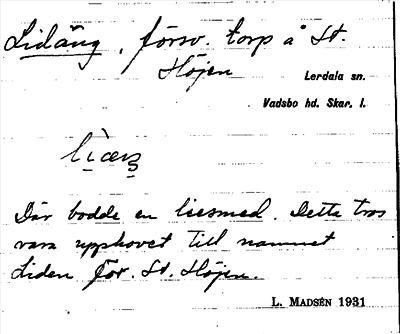 Lidäng, försv. torp å St.
Höjen
Lerdala sn.
Vadsbo hd. Skar. l.
Där bodde en liesmed. Detta tros
vara upphovet till namnet
Liden för St. Höjen.
L. MADSÉN 1931